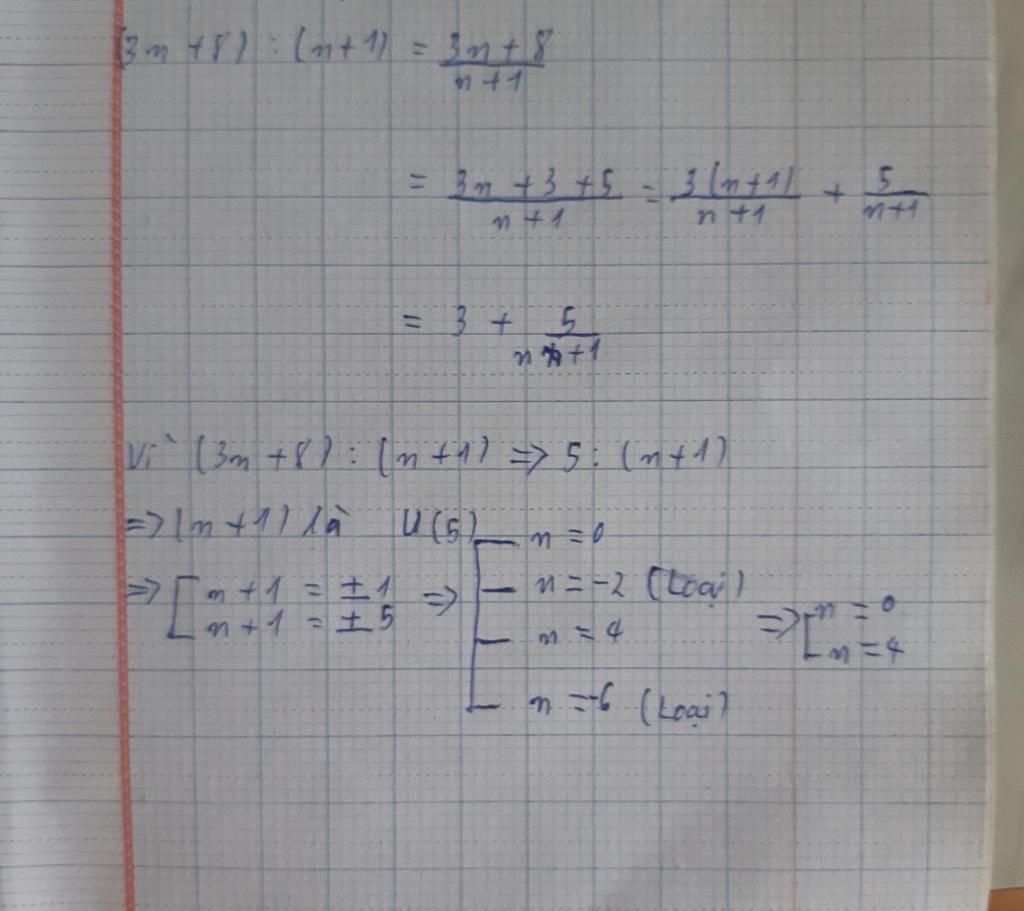 (3n + 8) : (n + 1) = \frac{3n + 8}{n + 1}
= \frac{3n + 3 + 5}{n + 1} = \frac{3(n + 1)}{n + 1} + \frac{5}{n + 1}
= 3 + \frac{5}{n + 1}
Vì (3n + 8) : (n + 1) => 5 : (n + 1)
=> (n + 1) là U(5)
=> [ n + 1 = ± 1
n + 1 = ± 5
=> [ n = 0
n = -2 (Loại)
n = 4
n = -6 (Loại)
=> [ n = 0
n = 4